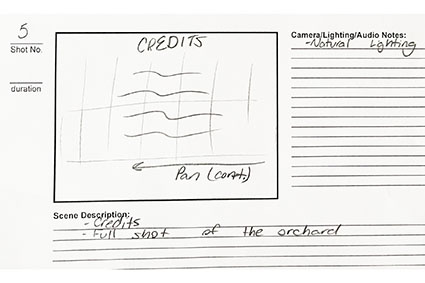 5
Shot No.
duration
CREDITS
Pan (cont.)
Camera/Lighting/Audio Notes:
-Natural Lighting
Scene Description:
- Credits
- Full shot of the orchard